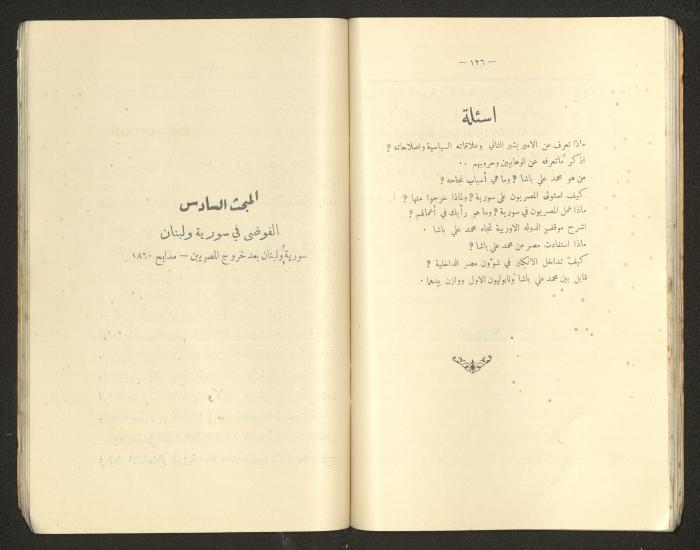 — ١٢٦ —
اسئلة
ماذا تعرف عن الامير بشير الثاني وعلاقاته السياسية واصلاحاته ؟
اذكر ماتعرفه عن الوهابيين وحروبهم ٠٠
من هو محمد علي باشا ؟ وما هي أسباب نجاحه ؟
كيف استولى المصريون على سورية ؟ ولماذا خرجوا منها ؟
ماذا عمل المصريون في سورية ؟ وما هو رأيك في أعمالهم ؟
اشرح موقف الدوله الاوربية تجاه محمد علي باشا ٠
ماذا استفادت مصر من محمد علي باشا ؟
كيف تداخل الانكليز في شؤون مصر الداخلية ؟
قابل بين محمد علي باشا ونابوليون الاول ووازن بينهما ٠
المبحث السادس
الفوضى في سورية ولبنان
سورية ولبنان بعد خروج المصريين — مذابح ١٨٦٠